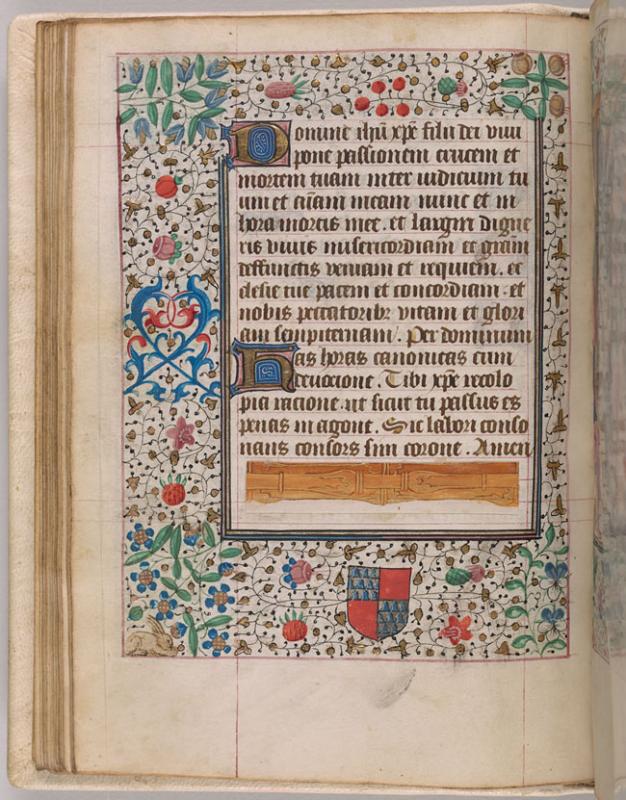 Domine ihū xpē fili dei viui
pone passionem crucem et
mortem tuam inter iudicium tu
um et aīam meam nunc et in
hora mortis mee. et largiri digne
ris viuis misericordiam et grām
deffunctis veniam et requiem. ec
clesie tue pacem et concordiam. et
nobis peccatoribꝫ vitam et glori
am sempiternam. Per dominum
Has horas canonicas cum
deuocione. Tibi xpē recolo
pia racione. ut sicut tu passus es
penas in agone. Sic labori conso
nans consors sim corone. Amen